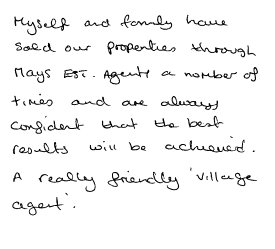 Myself and family have
sold our properties through
Mays EST. Agents a number of
times and are always
confident that the best
results will be achieved.
A really friendly 'village
agent'.